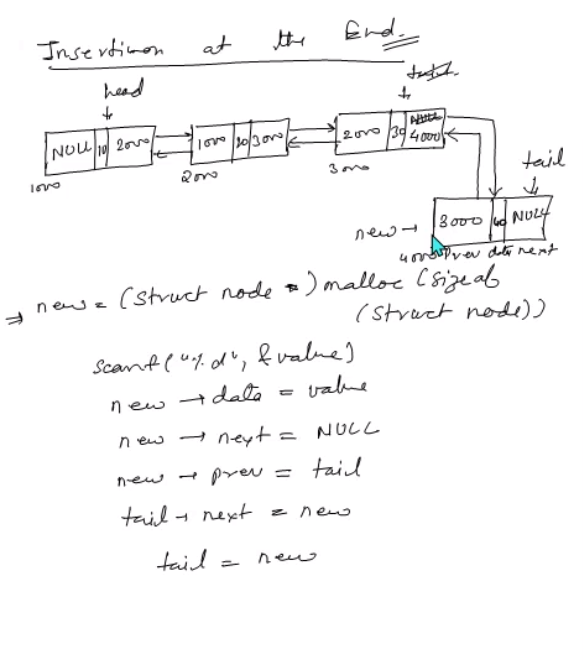 Insertion at the End.
head
tail
NULL 10 2000
1000 20 3000
2000 30 NULL 4000
1000
2000
3000
tail
new →
3000 40 NULL
4000 prev data next
⇒ new = (struct node *) malloc (sizeof
(struct node))
scanf("%d", &value)
new → data = value
new → next = NULL
new → prev = tail
tail → next = new
tail = new